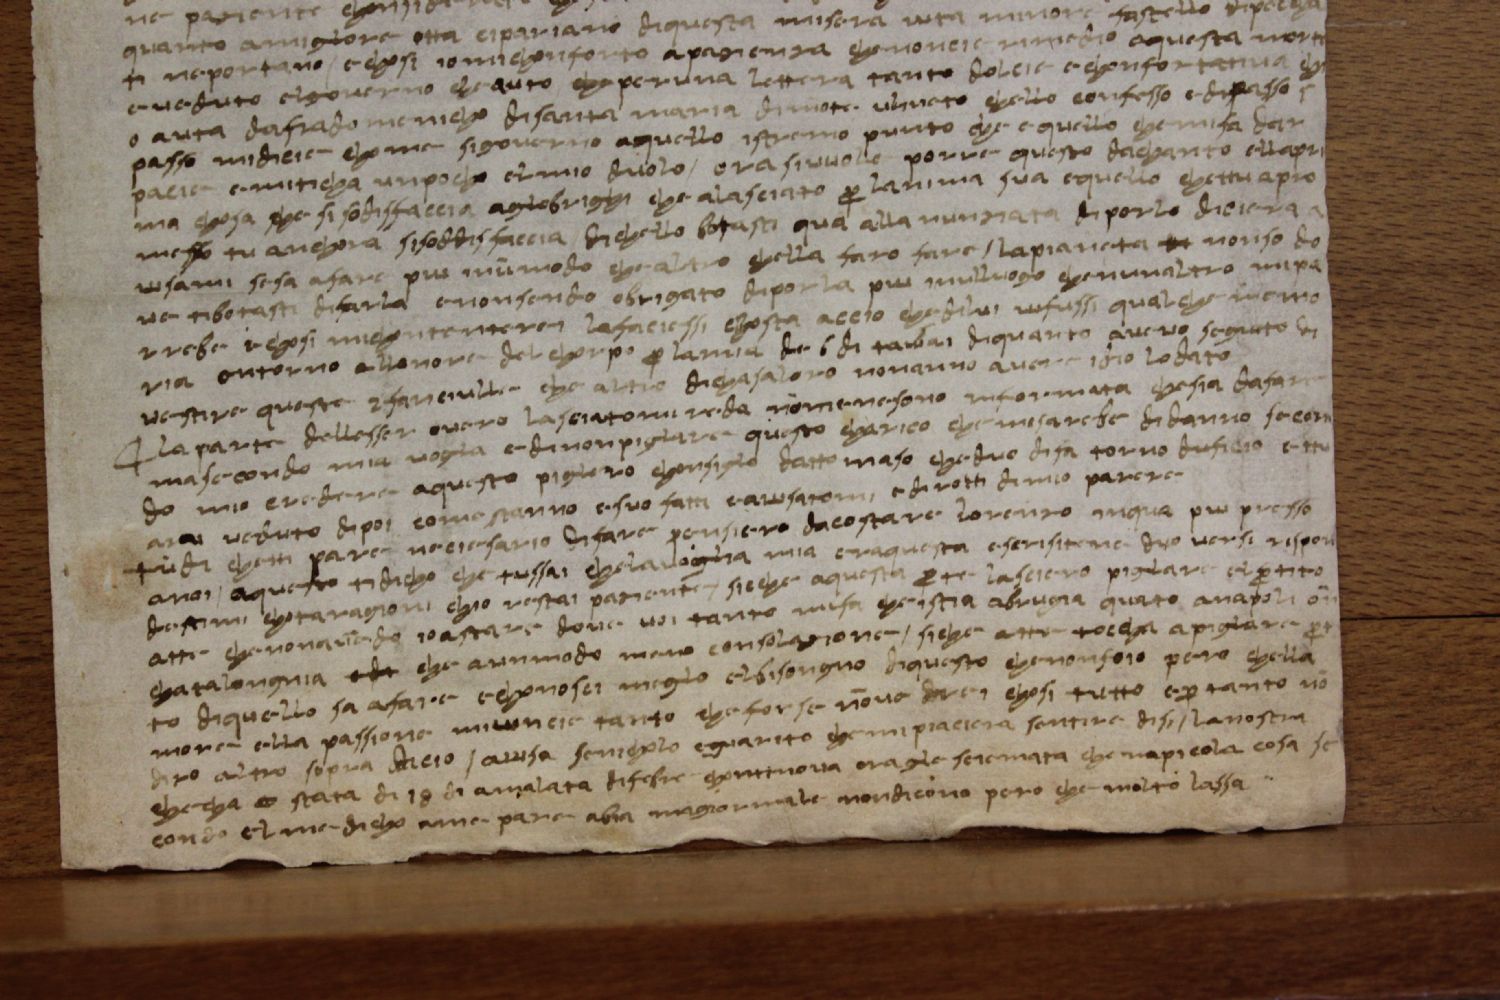 ne paziente chonsiderato che
quanto a migliore otta ci pariano di questa misera vita minore fastello di pecchati
ti ne portano / e chosi io mi chonforto a pazienza che non cie rimedio a questa morte
e veduto el governo che auto per una lettera tanto dolcie e chonfortativa ch
o auta da fra domenicho di santa maria di monte uliveto chello confesso e di passo i
passo mi dicie chome si governo a quello istremo punto che e quello che mi fa dar
pacie e mitigha un pocho el mio duolo / ora si vuole porre questo da chanto e lla pri
ma chosa che si sodisfaccia agl obrighi che a lasciato p lanima sua e quello che ttu a pro
messo tu anchora si soddisfaccia / di chello botasti qua alla nunziata di porlo di ciera a
visami se s a fare piu in un modo che altro chella faro fare / la pianeta non so do
ve ti botasti di farla e non sendo obrigato di porla piu in un luogo che nun altro mi pa
rrebe e chosi mi chontenterei la faciessi chosta accio che di lui vi fussi qualche memo
ria entorno all onore del chorpo p lan mia de 6 di t avisai di quanto avevo seghuito di
vestire queste 2 fanciulle che altro di chasa loro non anno avere idio lodato
la parte dell esser overo lasciatomi reda no me ne sono informata che sia da fare
ma secondo mia voglia e di non pigliare questo charico che mi sarebe di danno secon
do mio credere a questo pigliero chonsiglio da ttomaso che duo di fa torno d uficio e ttu
arai veduto dipoi come stanno e suo fatti e avisatomi e dirotti di mio parere
tu di che tti pare neciesario di fare pensiero d acostare lorenzo in qua piu presso
a noi / a questo ti dicho che tu ssai che la voglia mia era questa e scrisitene duo versi rispon
destimi chota ragioni ch io restai paziente / sicche a questa pte lasciero pigliare el ptito
a tte che non avendo io a stare dove voi tanto mi fa che i stia a brugia quato a napoli o in
chatalongnia che a un modo meno consolazione / siche a tte toccha a pigliare pti
to di quello s a a fare e chonosci meglio el bisongno di questo che non fo io pero che lla
more e lla passione mi vincie tanto che forse no ve drei chosi tutto e p tanto no
diro altro sopra di cio / avisa se nicholo e guarito che mi piaciera sentire di si / la nostra
checha e stata di 18 di amalata di febre chontinova ora gl e sciemata che na picola cosa se
condo el medicho a me pare abia magior male non dicono pero che molto lassa